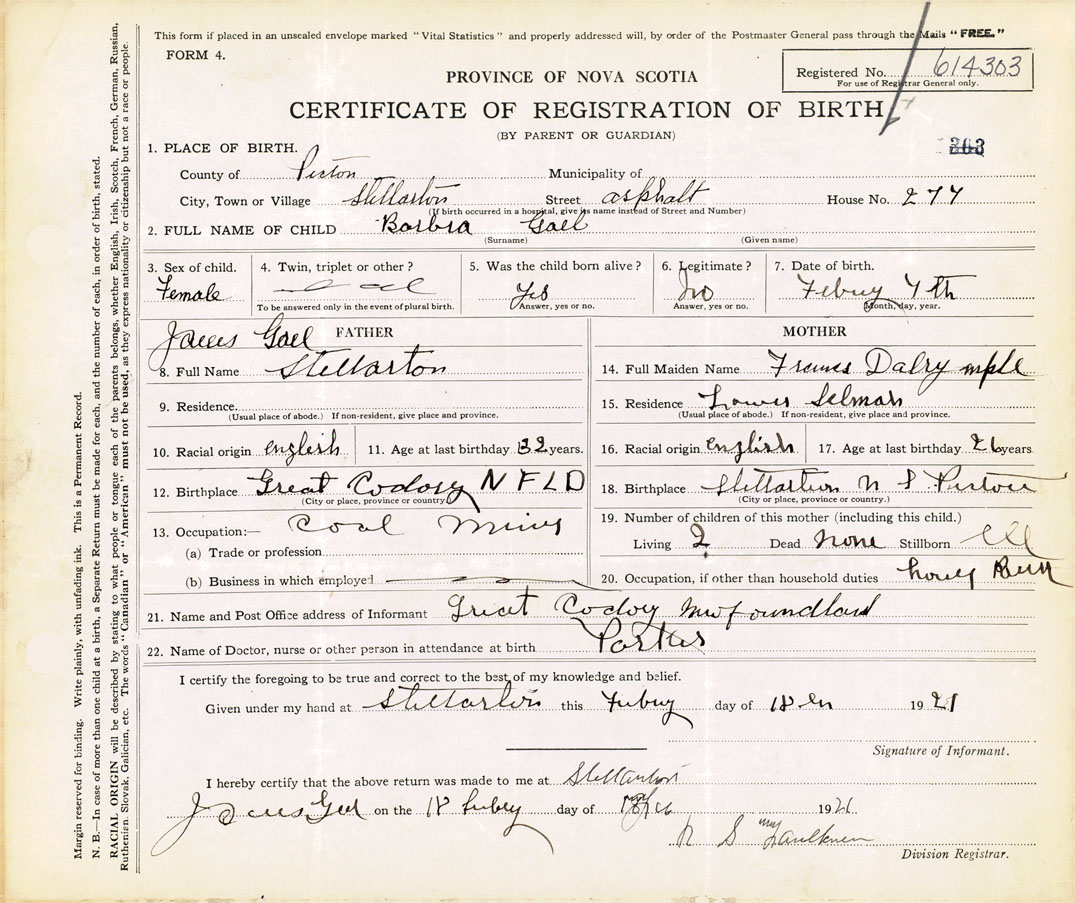 This form if placed in an unsealed envelope marked "Vital Statistics" and properly addressed will, by order of the Postmaster General pass through the Mails "FREE."
FORM 4.
Registered No. 614303
For use of Registrar General only.
PROVINCE OF NOVA SCOTIA
CERTIFICATE OF REGISTRATION OF BIRTH
(BY PARENT OR GUARDIAN)
303
1. PLACE OF BIRTH.
County of Picton Municipality of
City, Town or Village Stellarton Street asphalt House No. 277
(If birth occurred in a hospital, give its name instead of Street and Number)
2. FULL NAME OF CHILD Barbra Gael
(Surname) (Given name)
3. Sex of child. Female
4. Twin, triplet or other?
To be answered only in the event of plural birth.
5. Was the child born alive? Yes
Answer, yes or no.
6. Legitimate? No
Answer, yes or no.
7. Date of birth. Febuy 7th
Month, day, year.
FATHER
James Gael
8. Full Name Stellarton
9. Residence.
(Usual place of abode.) If non-resident, give place and province.
10. Racial origin english 11. Age at last birthday 32 years.
12. Birthplace Great Codory NFLD
(City or place, province or country)
13. Occupation:— Coal Mines
(a) Trade or profession
(b) Business in which employed
MOTHER
14. Full Maiden Name Frances Dalrymple
15. Residence Lower Selmah
(Usual place of abode.) If non-resident, give place and province.
16. Racial origin english 17. Age at last birthday 26 years
18. Birthplace Stellarton N S Pictou
(City or place, province or country.)
19. Number of children of this mother (including this child.)
Living 2 Dead None Stillborn
20. Occupation, if other than household duties
21. Name and Post Office address of Informant Great Codoy Newfoundland
22. Name of Doctor, nurse or other person in attendance at birth Porter
I certify the foregoing to be true and correct to the best of my knowledge and belief.
Given under my hand at Stellarton this Febuy day of 18 1921
Signature of Informant.
I hereby certify that the above return was made to me at Stellarton
James Gael on the 18 Febuy day of 1921
Faulkner
Division Registrar.
Margin reserved for binding. Write plainly, with unfading ink. This is a Permanent Record.
N. B.—In case of more than one child at a birth, a Separate Return must be made for each, and the number of each, in order of birth, stated.
RACIAL ORIGIN will be described by stating to what people or tongue each of the parents belongs, whether English, Irish, Scotch, French, German, Russian,
Ruthenian, Slovak, Galician, etc. The words "Canadian" or "American" must not be used, as they express nationality or citizenship but not a race or people.